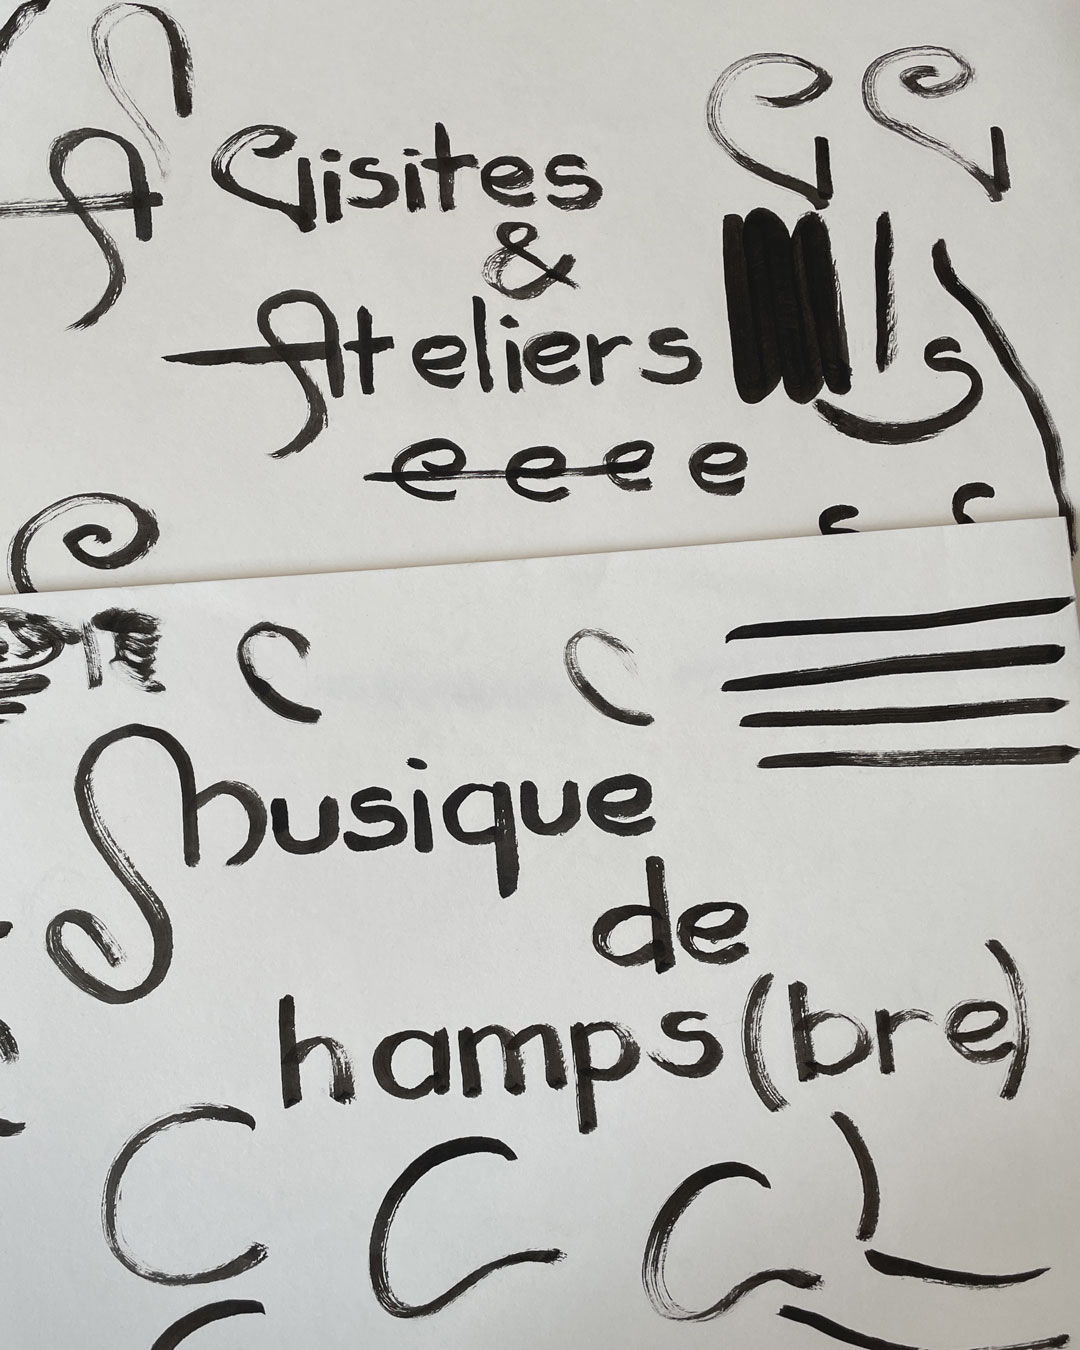 A Visites
&
Ateliers
e e e e
s
c c
Musique
de
hamps(bre)
C C C